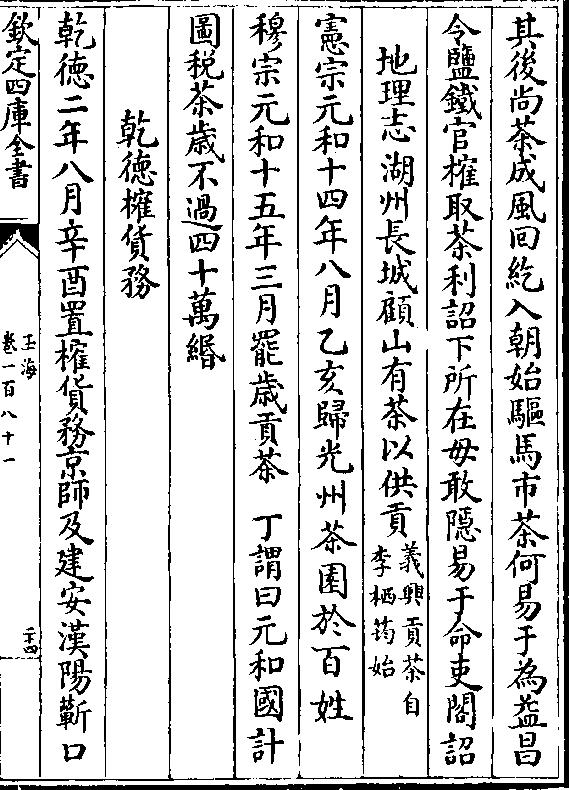 其後尚茶成風回紇入朝始驅馬市茶何易于為益昌
令鹽鐵官榷取茶利詔下所在毋敢隠易于命吏閣詔
地理志湖州長城顧山有茶以供貢義興貢茶自
李栖筠始
憲宗元和十四年八月乙亥歸光州茶園於百姓
穆宗元和十五年三月罷歳貢茶　丁謂曰元和國計
圖税茶歳不過四十萬緡
乾德榷貨務
乾德二年八月辛酉置榷貨務京師及建安漢陽蘄口
欽定四庫全書
玉海
卷一百八十一
二十四